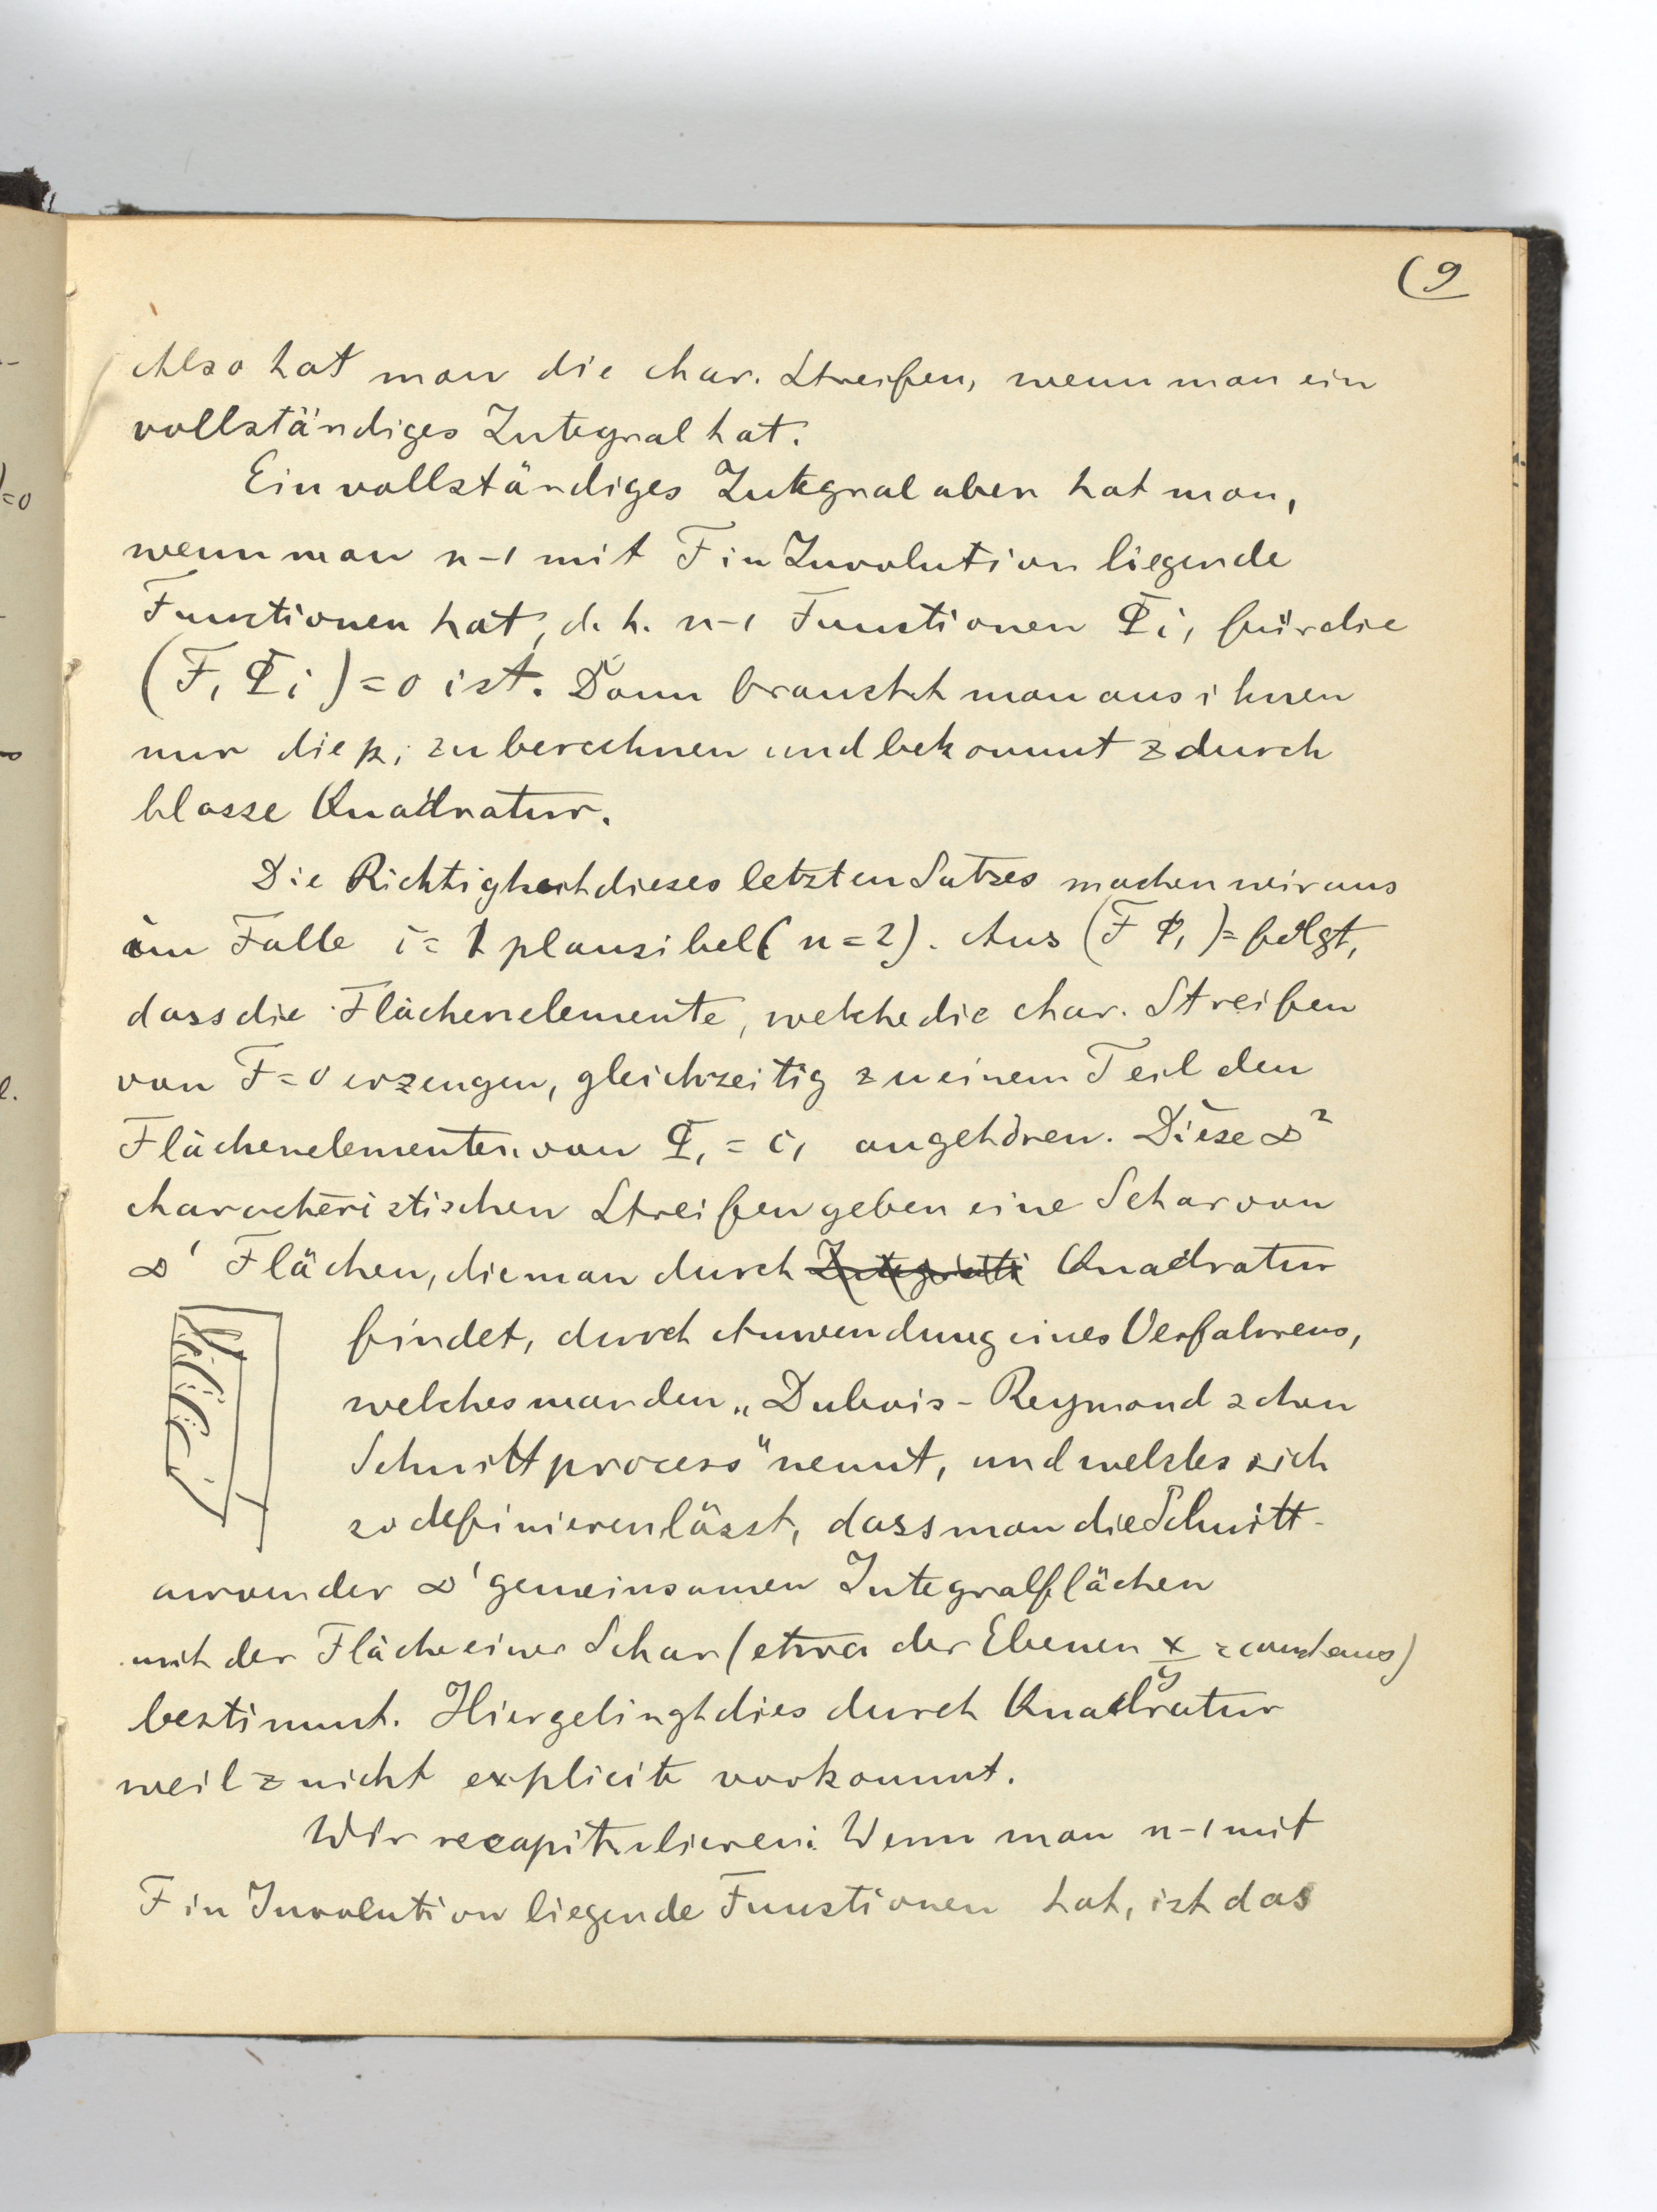 (9
Also hat man die char. Streifen, wenn man ein
vollständiges Integral hat.
Ein vollständiges Integral aber hat man,
wenn man n-1 mit F in Involution liegende
Functionen hat, d. h. n-1 Functionen Φi, für die
(F, Φi) = 0 ist. Dann braucht man aus ihnen
nur die pi zu berechnen und bekommt z durch
blosse Quadratur.
Die Richtigkeit dieses letzten Satzes machen wir uns
im Falle i = 1 plausibel (n = 2). Aus (F Φ1) = folgt,
dass die Flächenelemente, welche die char. Streifen
von F = 0 erzeugen, gleichzeitig zu einem Teil den
Flächenelementen von Φ1 = c1 angehören. Diese ∞²
characteristischen Streifen geben eine Schar von
∞¹ Flächen, die man durch Integrati Quadratur
findet, durch Anwendung eines Verfahrens,
welches man den „Dubois-Reymondschen
Schnittprocess" nennt, und welches sich
so definieren lässt, dass man die Schnitt-
curven der ∞¹ gemeinsamen Integralflächen
mit der Fläche einer Schar (etwa der Ebenen x/y = constans)
bestimmt. Hier gelingt dies durch Quadratur
weil z nicht explicite vorkommt.
Wir recapitulieren: Wenn man n-1 mit
F in Involution liegende Functionen hat, ist das